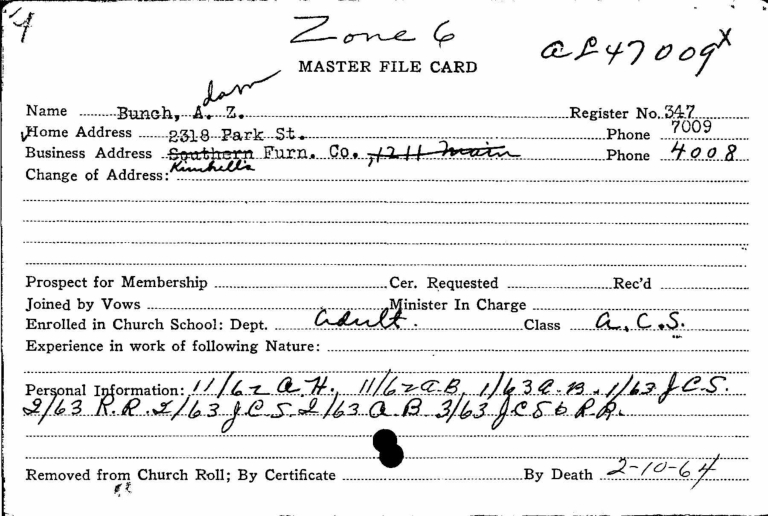 Zone 6
AL47009x
MASTER FILE CARD
dam
Name Bunch, A. Z. Register No. 347
✓Home Address 2318 Park St. Phone 7009
Business Address Southern Furn. Co., 1211 Main Phone 4008
Change of Address: Kimbell's
Prospect for Membership Cer. Requested Rec'd
Joined by Vows Minister In Charge
Enrolled in Church School: Dept. Adult. Class A.C.S.
Experience in work of following Nature:
Personal Information: 11/62 A.H., 11/62 A.B, 1/63 A.B. 1/63 J.C.S.
2/63 R.R. 2/63 J.C.S. 2/63 A.B 3/63 J.C.S & R.R.
Removed from Church Roll; By Certificate By Death 2-10-64